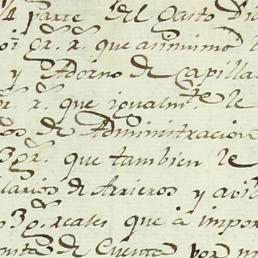 parte del Gasto Di
gr. r. que asimismo l
y Adorno de Capilla
r. r. que igualmte le
os de Administracion
3 gr. que tambien le
larios de Arrieros y avi
03 g. reales que a impor
de Cuenta por m